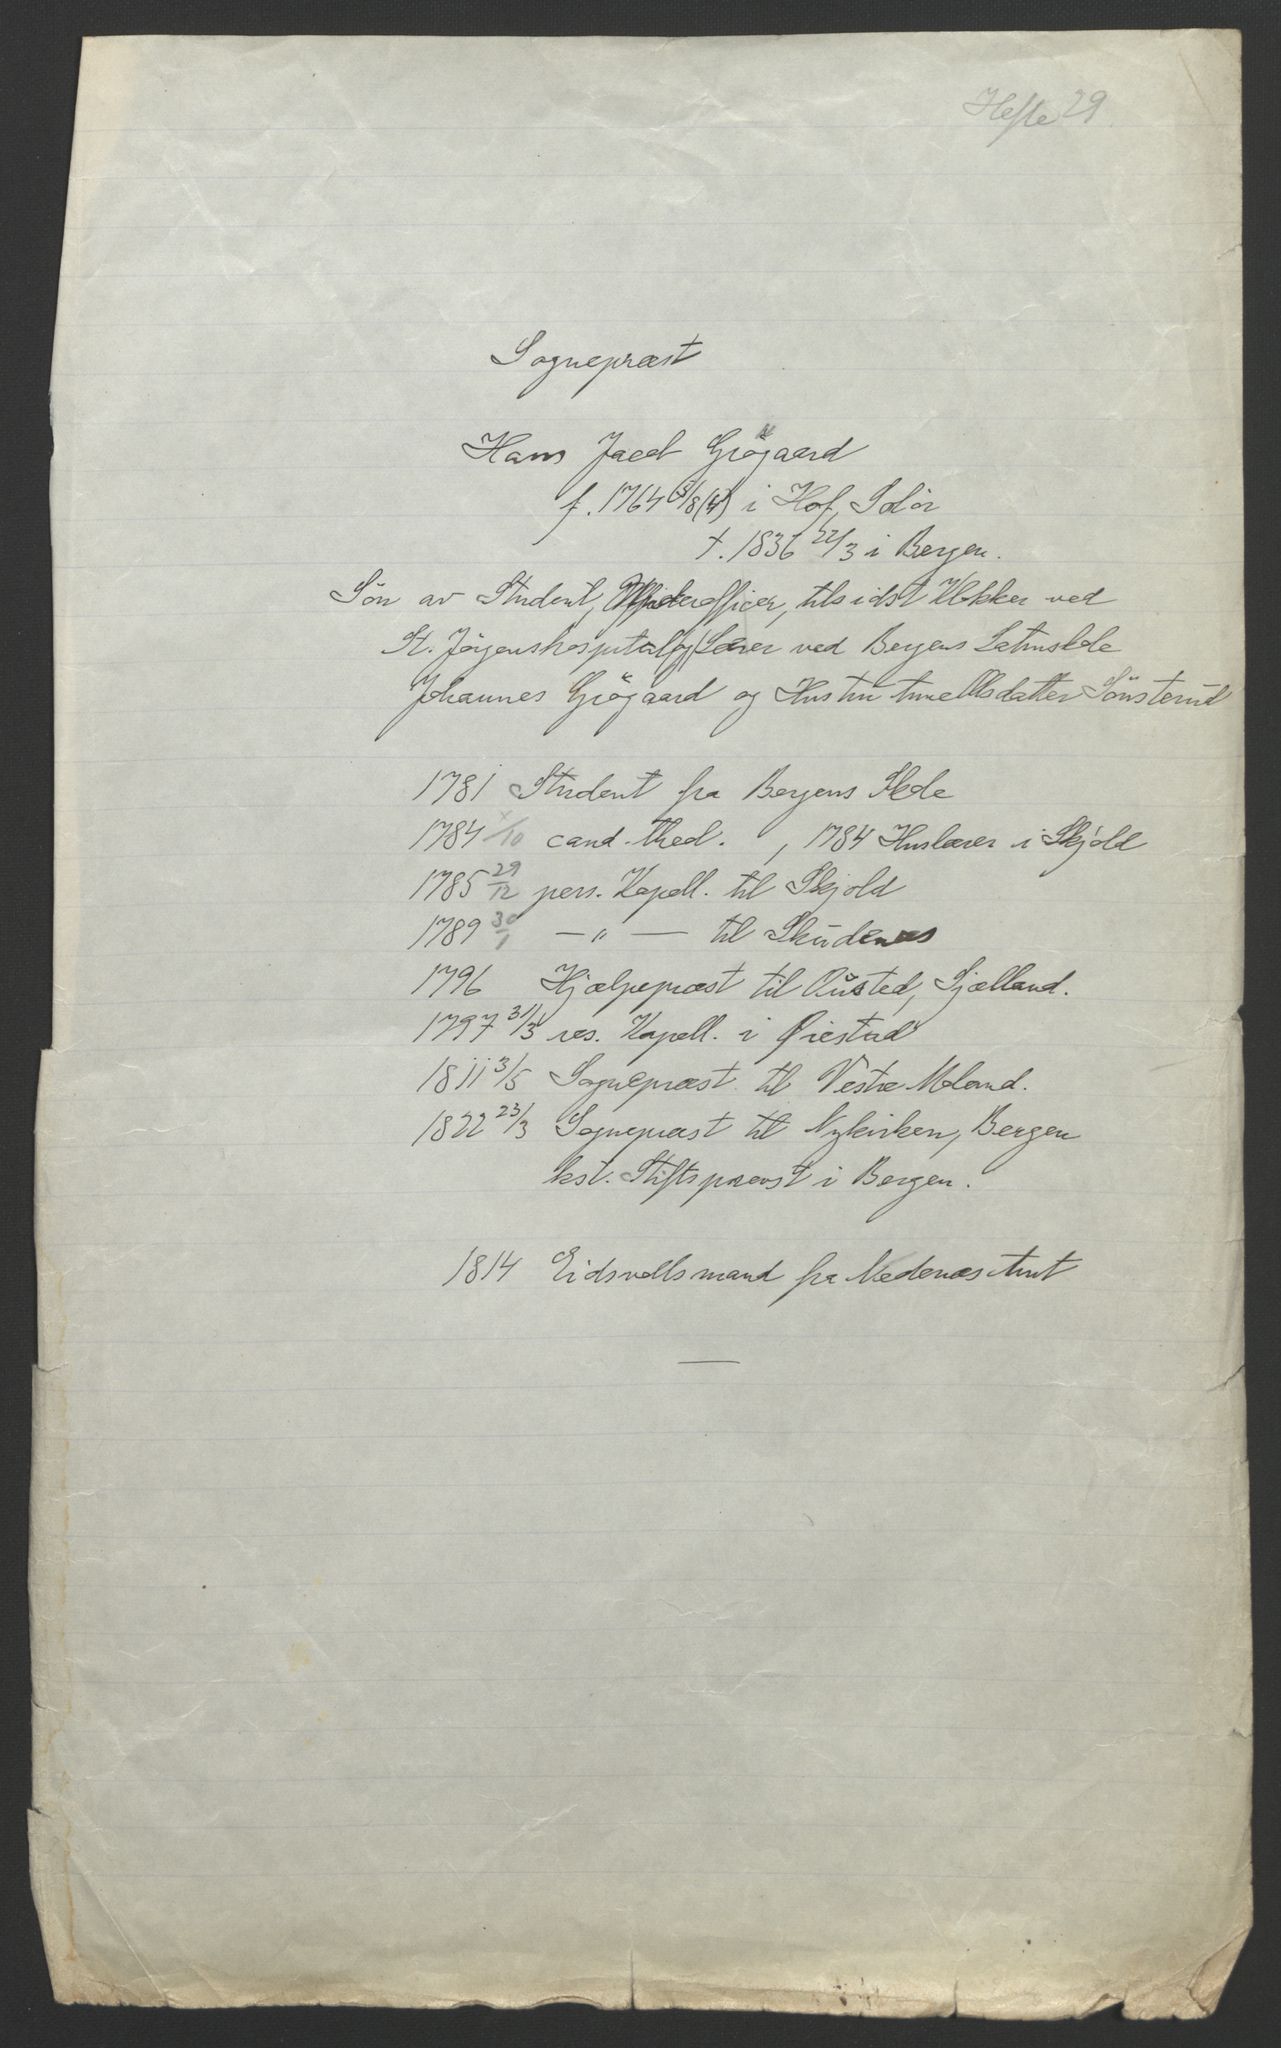 Hefte 29.
Sognepræst
Hans Jacob Grögaard
f. 1764 3/8 (4) i Hof, Solör
†. 1836 22/3 i Bergen.
Sön av Student, Underofficer, tilsidst Klokker ved
St. Jörgenshospital og Lærer ved Bergens Latinskole
Johannes Grögaard og Hustru Anne Olsdatter Sönsterud
1781 Student fra Bergens Skole
1784 /10 cand. theol. , 1784 Huslærer i Skjold
1785 29/12 pers. Kapell. til Skjold
1789 30/1 — " — til Skudenæs
1796 Hjælpepræst til Ousted, Sjælland.
1797 31/3 res. Kapell. i Øiestad
1811 3/5 Sognepræst til Vestre Moland.
1822 23/3 Sognepræst til Nykirken, Bergen
kst. Stiftsprovst i Bergen.
1814 Eidsvollsmand fra Nedenæs Amt